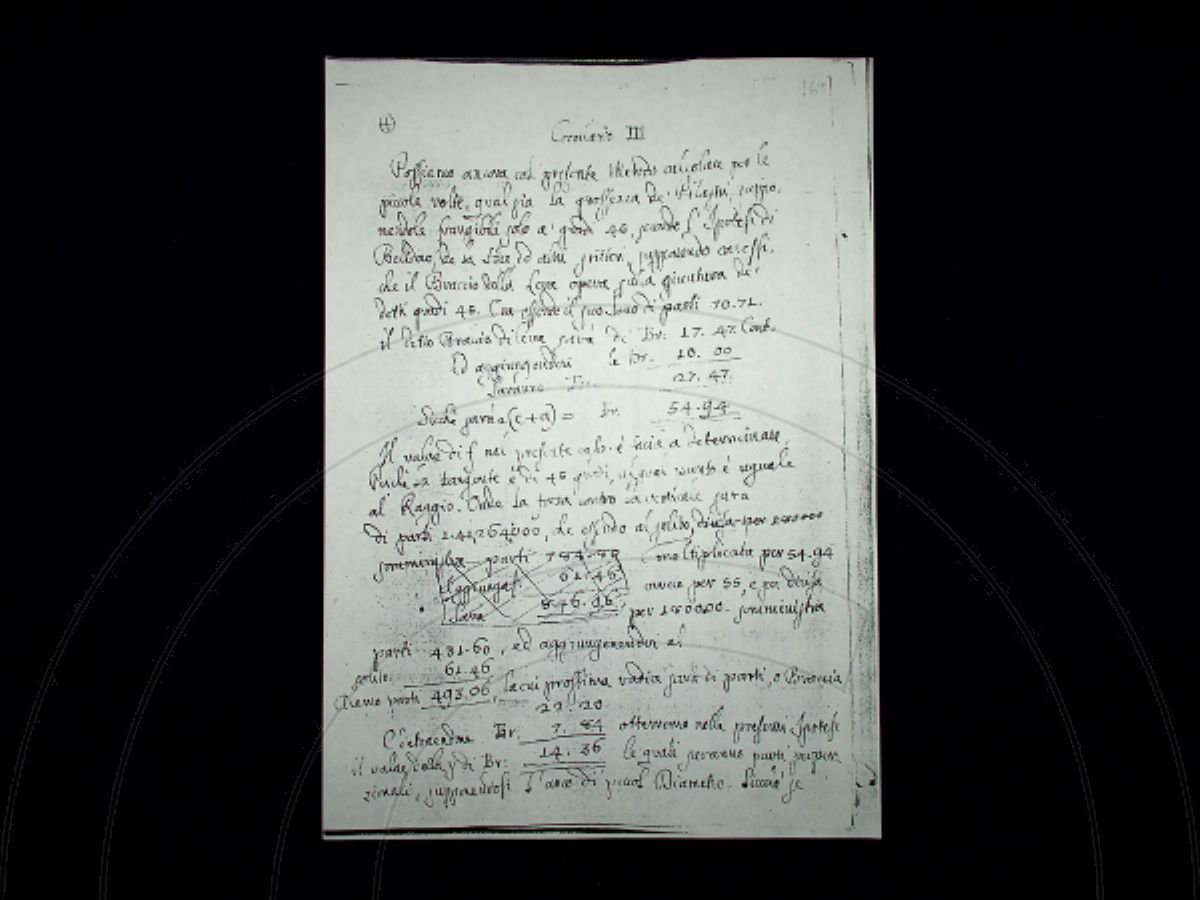 Corollario III
Possiamo ancora col presente Metodo calcolare per le
piccole volte, qual sia la grossezza de' Pilastri, suppo-
nendole frangibili solo a' gradi 45, secondo l'Ipotesi di
Belidor, de la Hire, ed altri scrittori, supponendo
che il Braccio della Leva opera sulla giuntura de'
detti gradi 45. Ora essendo il suo seno di parti 70.71.
il detto Braccio di leva sarà di Br: 17. 47. Cent.
Ed aggiungendovi le Br. 10. 00
Saranno Br. 27. 47.
Sicché sarà 2(c+a) = Br. 54.94
Il valore di f nel presente caso è facile a determinare,
Perché la tangente è di 45 gradi, è uguale
al Raggio. Onde la forza contro la verticale sarà
di parti, che essendo al solito, divisa per 180000
somministra parti 784.80 moltiplicata per 54.94
Si aggiunga 61.46 ovvero per 55, e poi divisa
Sarà 846.26 per 180000. somministra
parti 431.60, ed aggiungendovi al
solito 61.46
Avremo parti 493.06, la cui prossima radice sarà di parti, o Braccia
22.20
Estraendone Br: 7. 84 otterremo nella presente Ipotesi
il valore della y di Br: 14. 36 le quali saranno parti
supponendosi l'arco di piccol Diametro. Siccome se